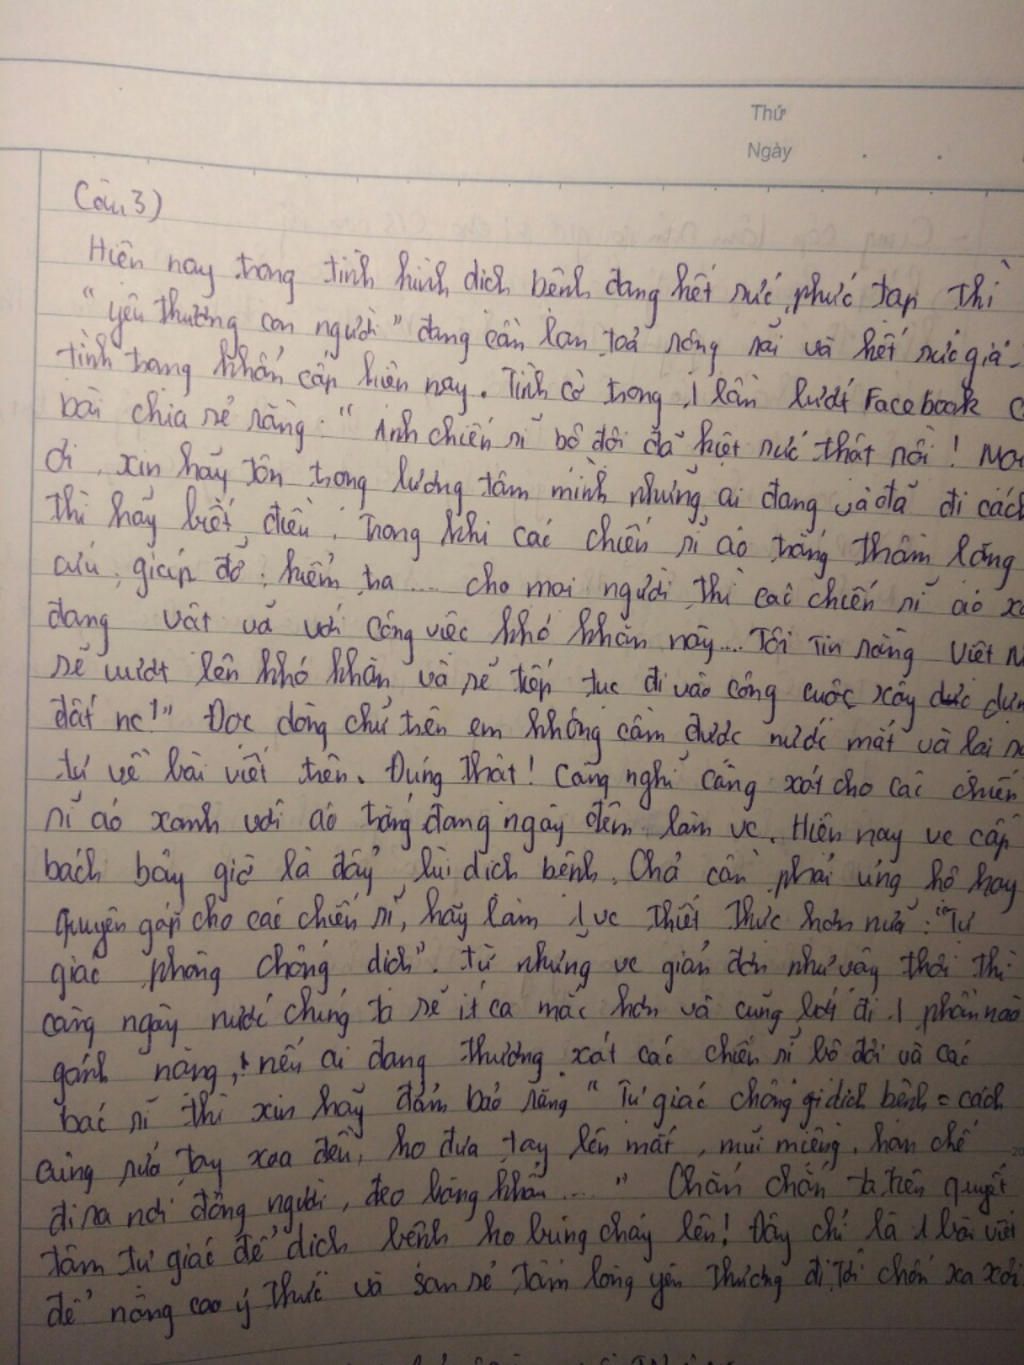 Thứ
Ngày
Câu 3)
Hiện nay trong tình hình dịch bệnh đang hết sức phức tạp thì
"yêu thương con người" đang cần lan toả rộng rãi và hết sức giá
tình trạng khẩn cấp hiện nay. Tình cờ trong 1 lần lướt Facebook
bài chia sẻ rằng: "Anh chiến sĩ bộ đội đã kiệt sức thật rồi!
ơi, xin hãy tôn trọng lương tâm mình những ai đang và đã đi cách
thì hãy biết điều. Trong khi các chiến sĩ áo trắng thầm lặng
cứu, giúp đỡ, kiểm tra .... cho mọi người thì các chiến sĩ áo
đang vật vã với công việc khó khăn này.... Tôi tin rằng Việt
sẽ vượt lên khó khăn và sẽ tiếp tục đi vào công cuộc xây dựng
đất nc!" Đọc dòng chữ trên em không cầm được nước mắt và lại
tư về bài viết trên. Đúng thật! Càng nghĩ càng xót cho các chiến
sĩ áo xanh với áo trắng đang ngày đêm làm vc. Hiện nay vc cấp
bách bây giờ là đẩy lùi dịch bệnh. Chả cần phải ủng hộ hay
quyên góp cho các chiến sĩ, hãy làm 1 vc thiết thực hơn nữa: "Tự
giác phòng chống dịch". Từ những vc giản đơn như vậy thôi thì
càng ngày nước chúng ta sẽ ít ca mắc hơn và cũng bớt đi 1 phần nào
gánh nặng, nếu ai đang thương xót các chiến sĩ bộ đội và các
bác sĩ thì xin hãy đảm bảo rằng "Tự giác chống dịch bệnh = cách
cùng rửa tay xoa đều, ko đưa tay lên mắt, mũi miệng, hạn chế
đi ra nơi đông người, đeo băng khẩu ...." Chắn chắn ta tiên quyết
tâm tự giác để dịch bệnh ko bùng cháy lên! Đây chỉ là 1 bài viết
để nâng cao ý thức và san sẻ tấm lòng yêu thương đi tới chốn xa xôi